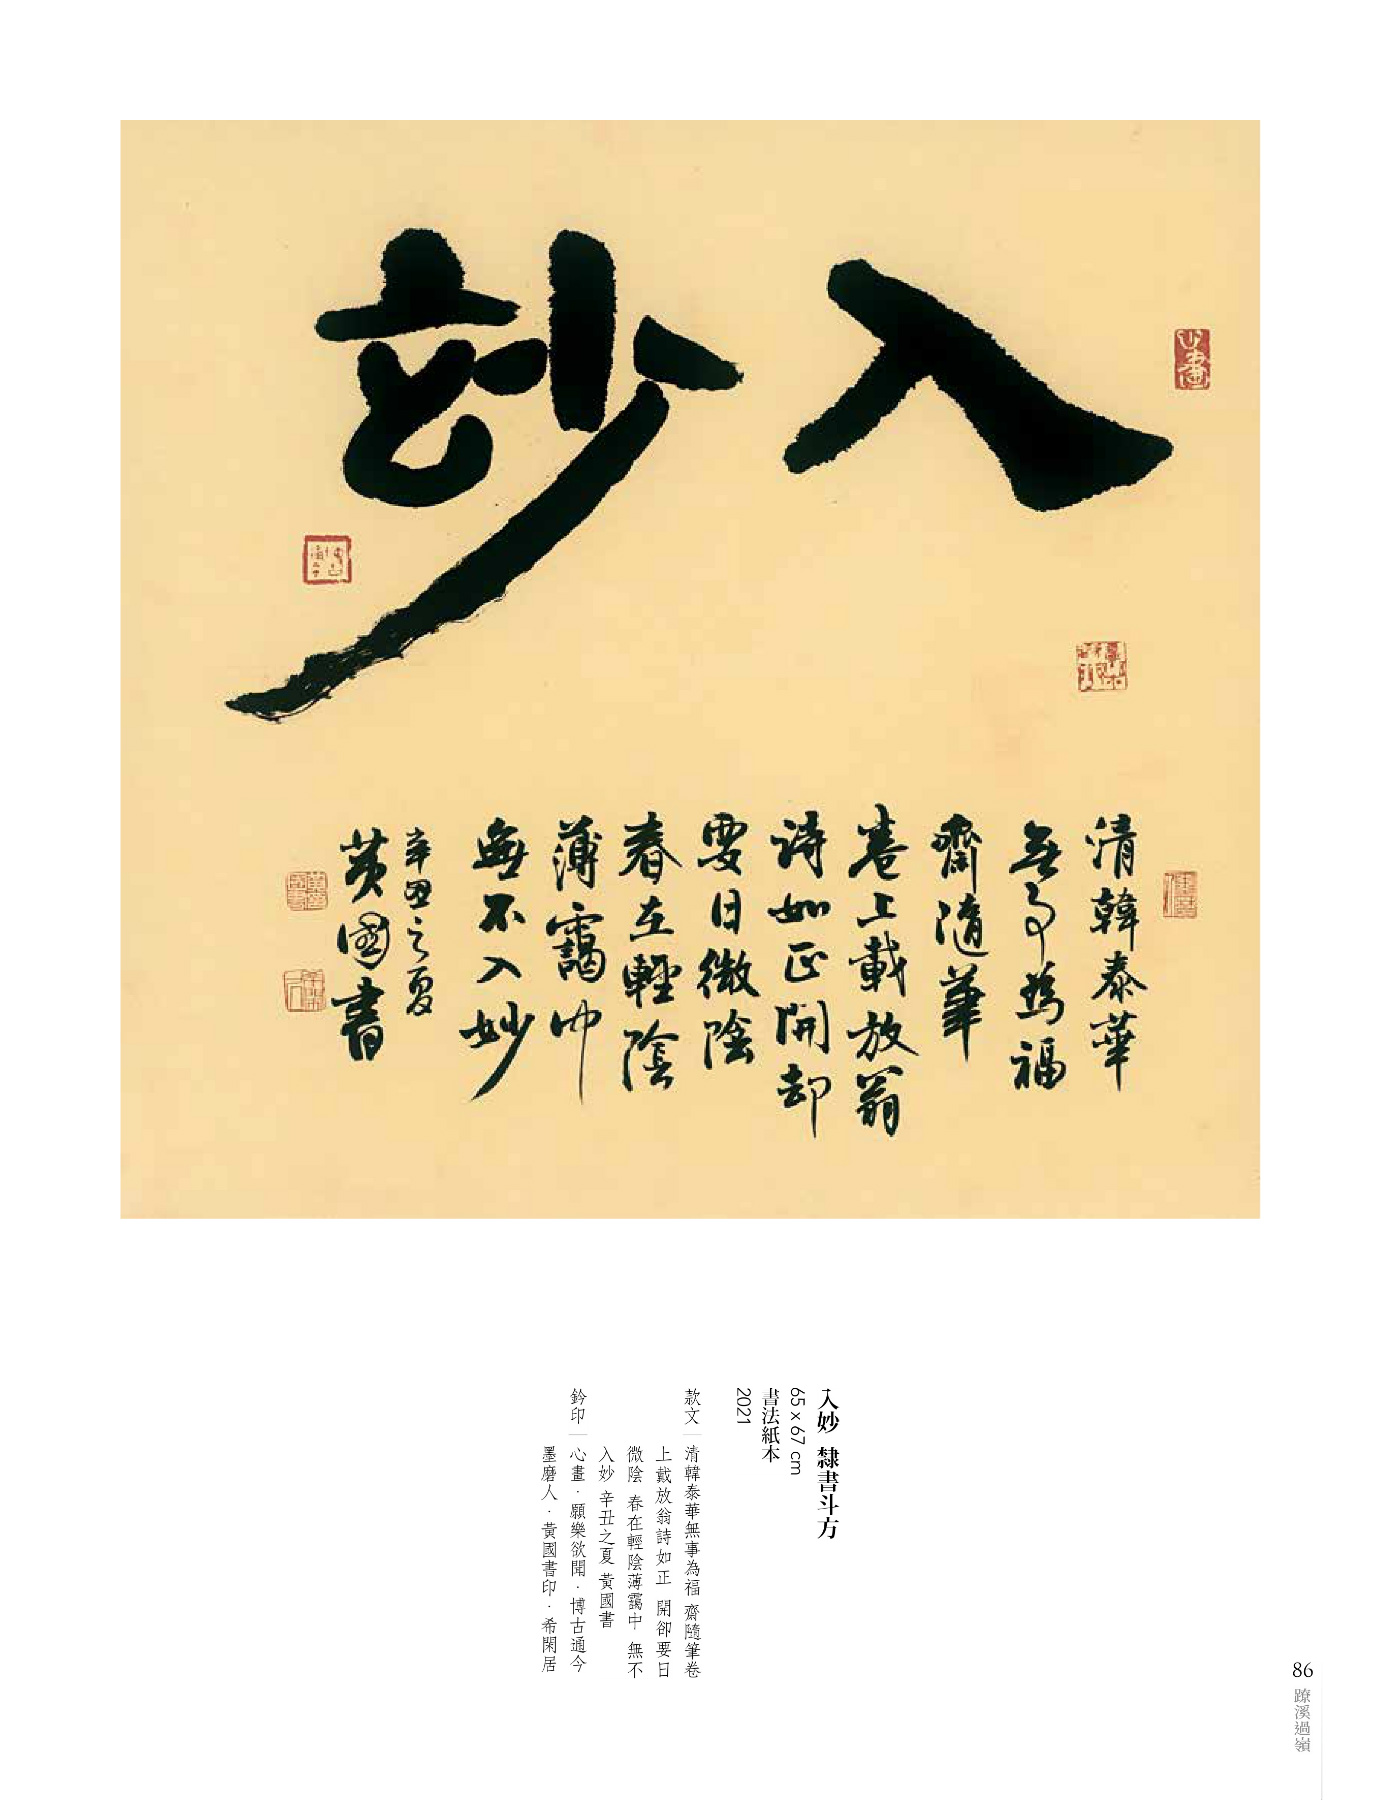 入妙
清韓泰華
無事為福
齋隨筆
卷上載放翁
詩如正開却
要日微陰
春在輕陰
薄靄中
無不入妙
辛丑之夏
黃國書
入妙 隸書斗方
65 x 67 cm
書法紙本
2021
款文｜清韓泰華無事為福 齋隨筆卷
上戴放翁詩如正 開卻要日
微陰 春在輕陰薄靄中 無不
入妙 辛丑之夏 黃國書
鈐印｜心畫．願樂欲聞．博古通今
墨磨人．黃國書印．希閑居
86
蹽溪過嶺